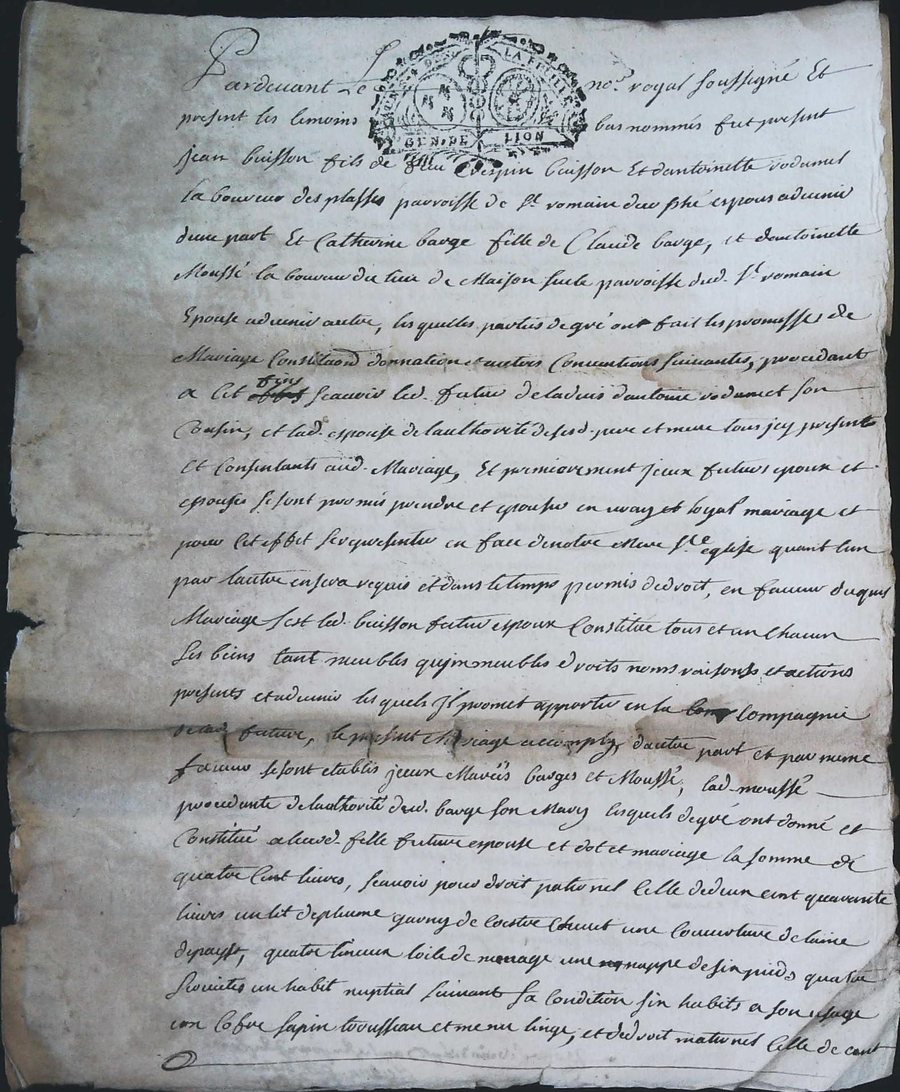 Pardevant Le no.re royal soussigné Et
LA FEUILLE
GEN. DE LION
present les temoins bas nommés fut present
Jean buisson fils de feu buisson Et dantoinette vodumes
la boureur des plasses parroisse de St. romain durphé espoux advenir
dune part Et Catherine barge fille de Claude barge, et dantoinette
Moussé la boureur du lieu de Maison fucle parroisse dud. St. romain
Epouse advenir autre, lesquelles parties de gré ont fait les promesses de
Mariage Constitaõn donnation et autres Conventions suivantes, procedant
a Cet fins scavoir led. futur de ladvis dantoine vodumet son
Cousin, et lad. espouse de lauthorité de sesd. pere et mere tous jcy presents
Et Consentants aud. Mariage, Et premierement jceux futurs epoux et
epouses se sont promis prendre et epouser en vray et loyal mariage et
pour Cet effet se representer en face de notre Mere Ste. eglise quant lun
par lautre en sera requis et dans le temps permis de droit, en faveur duquel
Mariage sest led. buisson futur espoux Constitué tous et un Chacun
ses biens tant meubles qujmmeubles droits noms raisons et actions
presents et advenir lesquels Jl promet apporter en la Compagnie
de lad. future, le present Mariage accomply, dautre part et par meme
faveur se sont etablis jceux Mariés barges et Moussé, lad. moussé
procedante de lauthorité dud. barge son Mary lesquels de gré ont donné et
Constitué a leurd. fille future espouse et dot et mariage la somme de
quatre Cent livres, scavoir pour droit paternel Celle de deux cent quarante
livres un lit de plume garny de coestre Chevet une Couverture de laine
de pays, quatre linceux toile de menage une nappe de six pieds quatre
serviettes un habit nuptial suivant sa Condition six habits a son usage
un Cofre sapin trousseau et menu linge, et de droit maternel Celle de cent